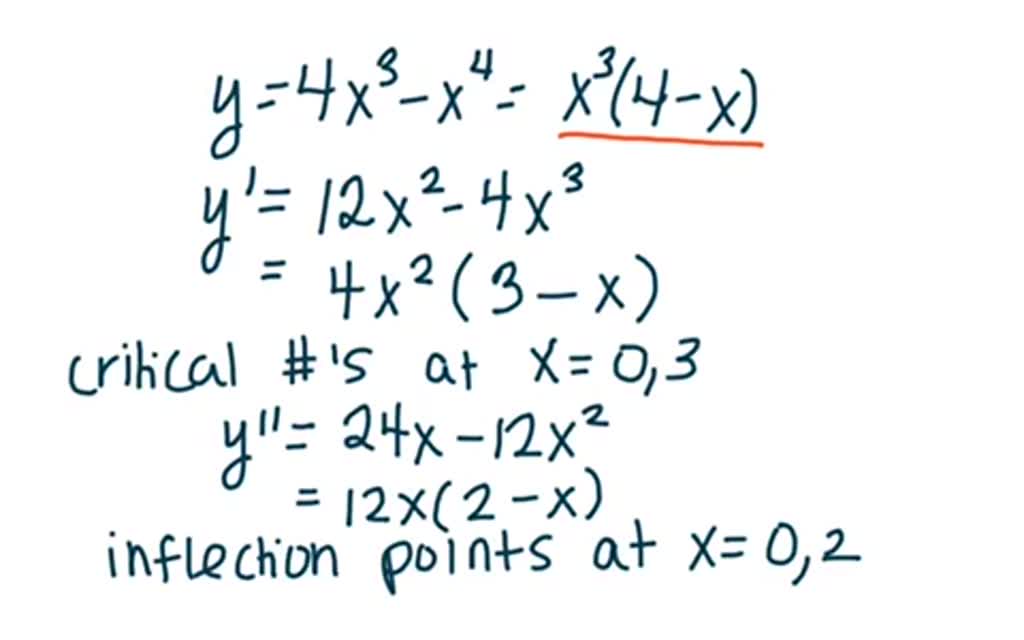 y = 4x³ - x⁴ = x³(4 - x)
y' = 12x² - 4x³
= 4x² (3 - x)
critical #'s at x = 0, 3
y'' = 24x - 12x²
= 12x(2 - x)
inflection points at x = 0, 2